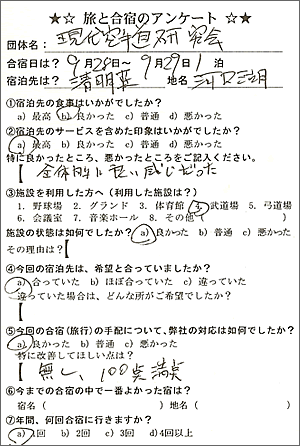 ★☆ 旅と合宿のアンケート ☆★
団体名： 現代空手道研究会
合宿日は？ 9月28日～9月29日 1泊
宿泊先は？ 清明荘 地名 河口湖
①宿泊先の食事はいかがでしたか？
a) 最高 b) 良かった c) 普通 d) 悪かった
②宿泊先のサービスを含めた印象はいかがでしたか？
a) 最高 b) 良かった c) 普通 d) 悪かった
特に良かったところ、悪かったところをご記入ください。
全体的に良い感じだった
③施設を利用した方へ（利用した施設は？）
1. 野球場 2. グランド 3. 体育館 武道場 5. 弓道場
6. 会議室 7. 音楽ホール 8. その他（ ）
施設の状態は如何でしたか？ a) 良かった b) 普通 c) 悪かった
その理由は？
④今回の宿泊先は、希望と合っていましたか？
a) 合っていた b) ほぼ合っていた c) 違っていた
違っていた場合は、どんな所がご希望でしたか？
⑤今回の合宿（旅行）の手配について、弊社の対応は如何でしたか？
a) 良かった b) 普通 d) 悪かった
特に改善してほしい点は？
無し、100点満点
⑥今までの合宿の中で一番よかった宿は？
宿名（ ）地名（ ）
⑦年間、何回合宿に行きますか？
a) 1回 b) 2回 c) 3回 d) 4回以上